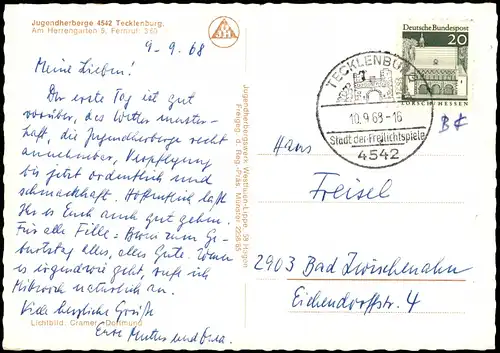 Jugendherberge 4542 Tecklenburg,
Am Herrengarten 5, Fernruf 360
9-9.68
Meine Lieben!
Der erste Tag ist gut
vorüber, das Wetter muster-
haft, die Jugendherberge recht
annehmbar, Verpflegung
bis jetzt ordentlich und
schmackhaft. Hoffentlich läßt
Ihr es Euch auch gut gehen.
Für alle Fälle: zum Ge-
burtstag alles, alles Gute. Wenn
es irgendwie geht, rufe ich
Mittwoch natürlich an.
Viele herzliche Grüße
Eure Mutter und
Lichtbild: Cramer, Dortmund
Jugendherbergswerk Westfalen-Lippe, 58 Hagen
Freigeg. d. Reg.-Präs. Münster
TECKLENBURG
10.9.68-16
Stadt der Freilichtspiele
4542
DEUTSCHE BUNDESPOST
20
LORSCH/HESSEN
Hans
Freisel
2903 Bad Zwischenahn
Eichendorffstr. 4